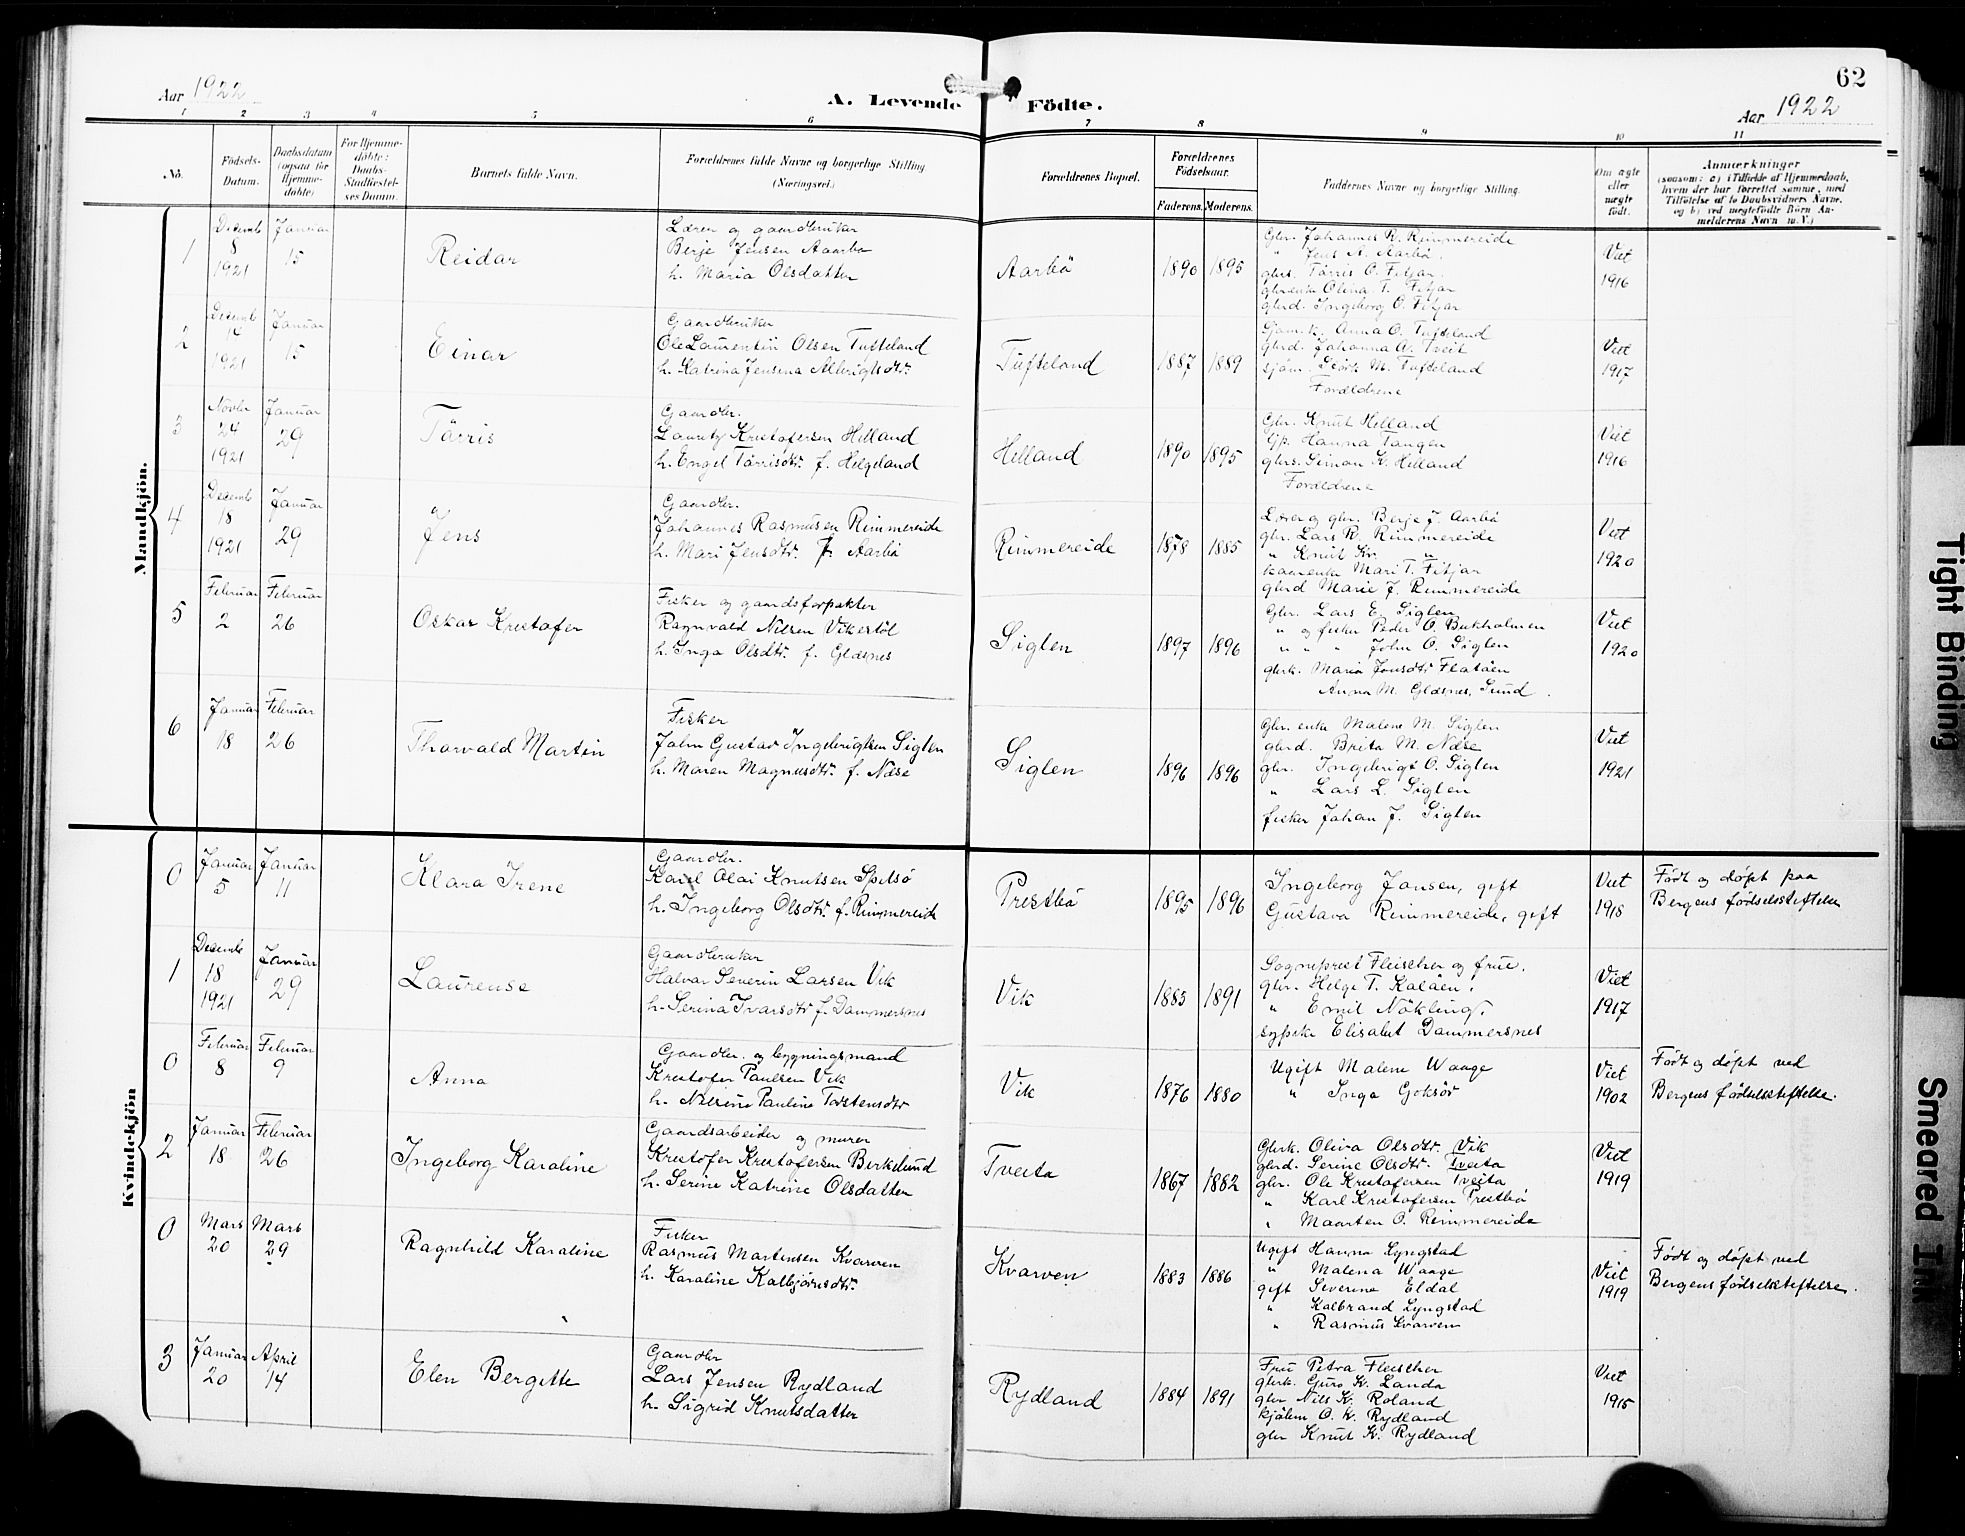 62
Aar 1922
A. Levende Födte.
Aar 1922
1 2 3 4 5 6 7 8 9 10 11
No.
Födsels-
Datum.
Daabsdatum
(ogsaa för
Hjemme-
döbte)
For Hjemme-
döbte:
Daabs-
Stadfæstel-
ses Datum.
Barnets fulde Navn.
Forældrenes fulde Navne og borgerlige Stilling
(Næringsvei.)
Forældrenes Bopæl.
Forældrenes
Födselsaar.
Faderens. Moderens.
Faddernes Navne og borgerlige Stilling.
Om ægte
eller
uægte
födt.
Anmærkninger
(saasom: a) i Tilfælde af Hjemmedaab,
hvem der har forrettet samme, med
Tilföielse af to Daabsvidners Navne,
og b) ved uægtefödte Börn An-
melderens Navn m. V.)
Mandkjön.
1
Decemb
8
1921
Januar
15
Reidar
Lærer og gaardbruker
Berje Jensen Aarbö
h. Maria Olsdatter
Aarbö
1890 1895
Gbr. Johannes R. Rimmereide
" Jens A. Aarbö.
gbrs. Tørris O. Fitjar.
gbrenke Olina T. Fitjar
gbrd. Ingeborg O. Fitjar
Viet
1916
2
Decemb
14
1921
Januar
15
Einar
Gaardbruker
Ole Laurentin Olsen Tufteland
h. Katrina Jensena Albrigtsdtr.
Tufteland
1887 1889
Sjöm.k. Anna O. Tufteland
gbrd. Johanna A. Tveit
sjöm. M. Tufteland
Forældrene
Viet
1917
3
Novbr
24
1921
Januar
29
Tørris
Gaardbr.
Lauritz Kristofersen Helland
h. Engel Tørrisdtr. f. Helgeland
Helland
1890 1895
Gbr. Knut Helland
Gp. Hanna Tangen
gbrs. Simon K. Helland
Forældrene
Viet
1916
4
Decemb
18
1921
Januar
29
Jens
Gaardbr.
Johannes Rasmusen Rimmereide
h. Mari Jensdtr. f. Aarbö
Rimmereide
1878 1885
Lærer og gbr. Berje J. Aarbö
gbr. Lars R. Rimmereide
" Knut Kr. "
kaarenke Mari T. Fitjar
gbrd Marie J. Rimmereide
Viet
1920
5
Februar
2
Februar
26
Oskar Kristofer
Fisker og gaardsforpakter
Ragnvald Nilsen Vikestöl
h. Inga Olsdtr. f. Glæsnes
Siglen
1897 1896
Gbr. Lars E. Siglen
" og fisker Peder O. Bukholmen
" " " John O. Siglen
gbrk. Maria Jonsdtr Flatöen
Anna M. Glæsnes, Sund.
Viet
1920
6
Januar
18
Februar
26
Thorvald Martin
Fisker
John Gustav Ingebrigtsen Siglen
h. Maren Magnusdtr. f. Næse
Siglen
1896 1896
Gbr. enke Malene M. Siglen
gbrd. Brita M. Næse
gbr. Ingebrigt O. Siglen
" Lars L. Siglen
fisker Johan J. Siglen
Viet
1921
Kvindekjön
0
Januar
5
Januar
11
Klara Irene
Gaardbr.
Karl Olai Knutsen Spilsö
h. Ingeborg Olsdtr. f. Rimmereide
Prestbö
1895 1896
Ingeborg Jansen, gift
Gustava Rimmereide, gift
Viet
1918
Født og døpt paa
Bergens fødselsstiftelse
1
Decemb
18
1921
Januar
29
Laurense
Gaardbruker
Halvar Severin Larsen Vik
h. Serina Ivarsdtr f. Dammersnes
Vik
1883 1891
Sogneprest Fleischer og frue.
gbr. Helge T. Kalöen.
" Emil Nökling.
Elisabet Dammersnes
Viet
1917
0
Februar
8
Februar
9
Anna
Gaardbr. og bygningsmand
Kristofer Paulsen Vik
h. Nilsine Pauline Tostensdtr
Vik
1876 1880
Ugift Malene Waage
" Inga Goksör
Viet
1902
Født og døpt ved
Bergens fødselsstiftelse.
2
Januar
18
Februar
26
Ingeborg Karoline
Gaardsarbeider og murer
Kristofer Kristofersen Birkelund
h. Serine Katrine Olsdatter
Tveita
1867 1882
Gbrk. Oliva Olsdtr. Vik
gbrd. Serine Olsdtr. Tveita
gbr. Ole Kristofersen Tveita
" Karl Kristofersen Prestbö
" Maarten O. Rimmereide
Viet
1919
0
Mars
20
Mars
29
Ragnhild Karoline
Fisker
Rasmus Martinsen Kvarven
h. Karoline Kolbjørnsdtr.
Kvarven
1883 1886
Ugift Hanna Lyngstad
" Malena Waage
gift Severine Eldal
" Kolbrand Lyngstad
" Rasmus Kvarven
Viet
1919
Født og døpt ved
Bergens fødselsstiftelse.
3
Januar
20
April
14
Elen Bergitte
Gaardbr
Lars Jensen Rydland
h. Sigrid Knutsdatter
Rydland
1884 1891
Fru Petra Fleischer
gbrk. Guro K. Landa
gbr Nils K. Roland
O. K. Rydland
gbr Knut K. Rydland
Viet
1915
Tight Binding
Smeared Ink